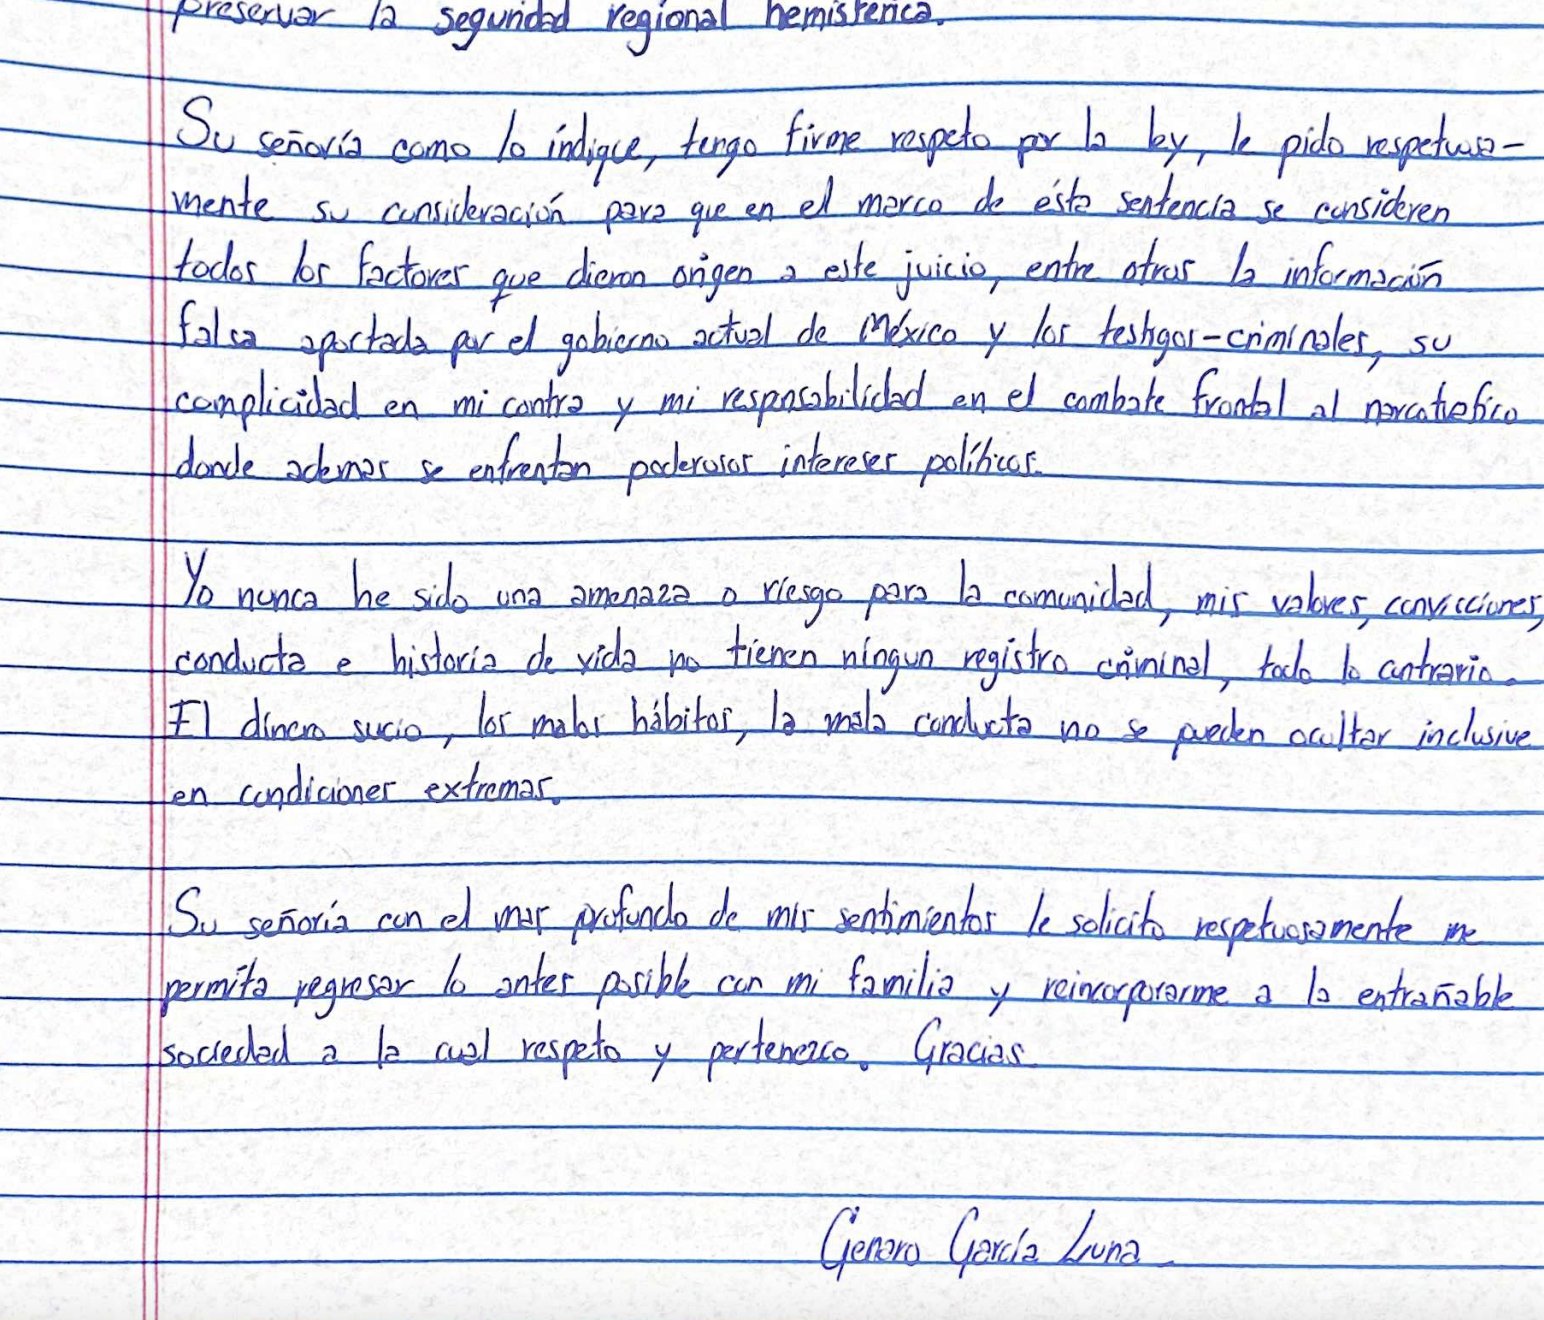 preservar la seguridad regional hemisférica.
Su señoría como lo índique, tengo firme respeto por la ley, le pido respetuosa-
mente su consideración para que en el marco de ésta sentencia se consideren
todos los factores que dieron origen a este juicio, entre otros la información
falsa aportada por el gobierno actual de México y los testigos-criminales, su
complicidad en mi contra y mi responsabilidad en el combate frontal al narcotrafico
donde ademas se enfrentan poderosos intereses políticos.
Yo nunca he sido una amenaza o riesgo para la comunidad, mis valores, convicciones,
conducta e historia de vida no tienen ningun registro criminal, todo lo contrario.
El dinero sucio, los malos hábitos, la mala conducta no se pueden ocultar inclusive
en condiciones extremas.
Su señoría con el mas profundo de mis sentimientos le solicito respetuosamente me
permita regresar lo antes posible con mi familia y reincorporarme a la entrañable
sociedad a la cual respeto y pertenezco. Gracias
Genaro García Luna